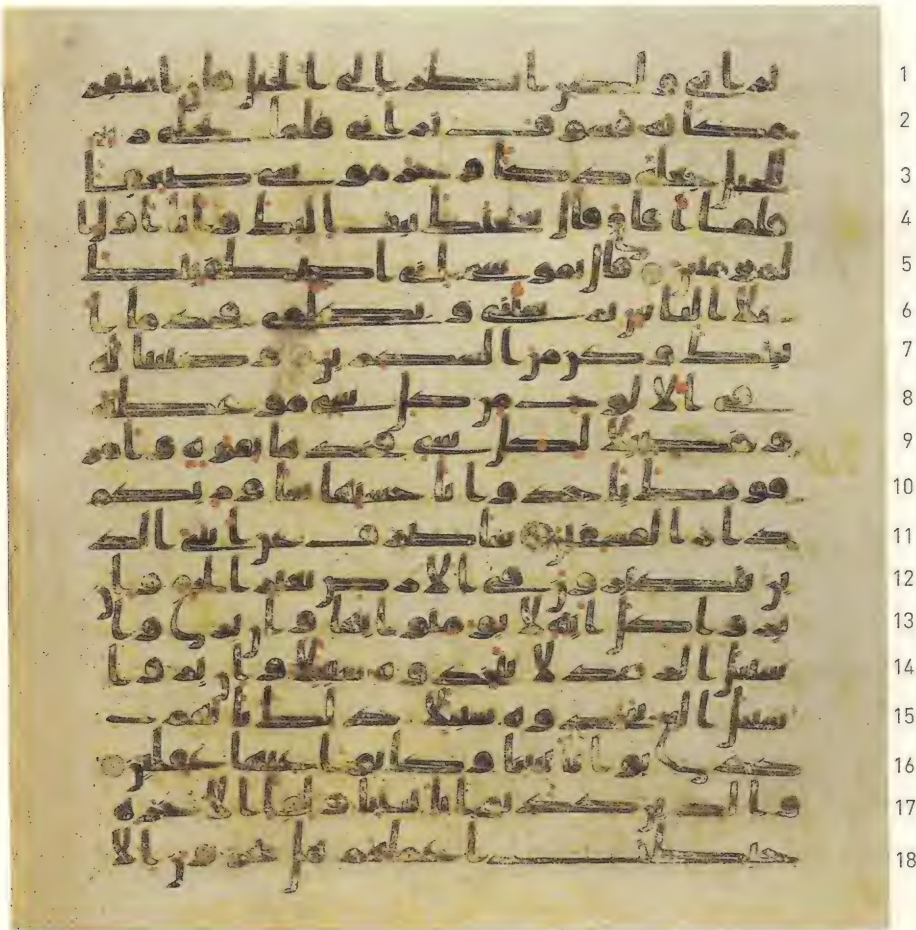 1 ترىنى ولكن انظر الى الجبل فان استقر
2 مكانه فسوف ترىنى فلما تجلى ربه
3 للجبل جعله دكا وخر موسى صعقا
4 فلما افاق قال سبحنك تبت اليك وانا اول ا
5 لمومنين قال يموسى انى اصطفيتك
6 على الناس برسلتى وبكلمى فخذ ما ا
7 تيتك وكن من الشكرين وكتبنا له
8 فى الالوح من كل شى موعظة
9 وتفصيلا لكل شى فخذها بقوة وامر
10 قومك ياخذوا باحسنها ساوريكم
11 دار الفسقين ساصرف عن ايتى الذ
12 ين يتكبرون فى الارض بغير الحق وان
13 يروا كل اية لا يومنوا بها وان يروا
14 سبيل الرشد لا يتخذوه سبيلا وان يروا
15 سبيل الغى يتخذوه سبيلا ذلك بانهم
16 كذبوا بايتنا وكانوا عنها غفلين
17 والذين كذبوا بايتنا ولقا الاخرة
18 حبطت اعملهم هل يجزون الا